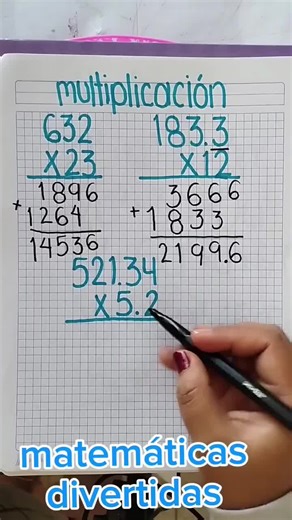 multiplicación
632 183.3
x23 x12
1896 3666
+1264 +1833
14536 2199.6
521.34
x5.2
matemáticas
divertidas